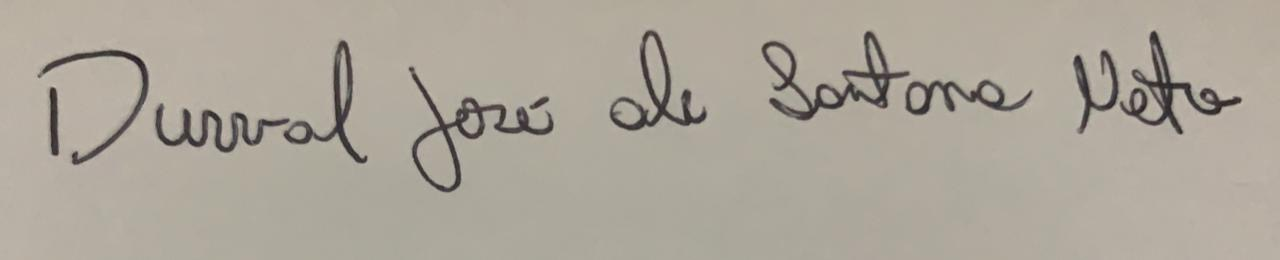 Durval José de Santana Neto